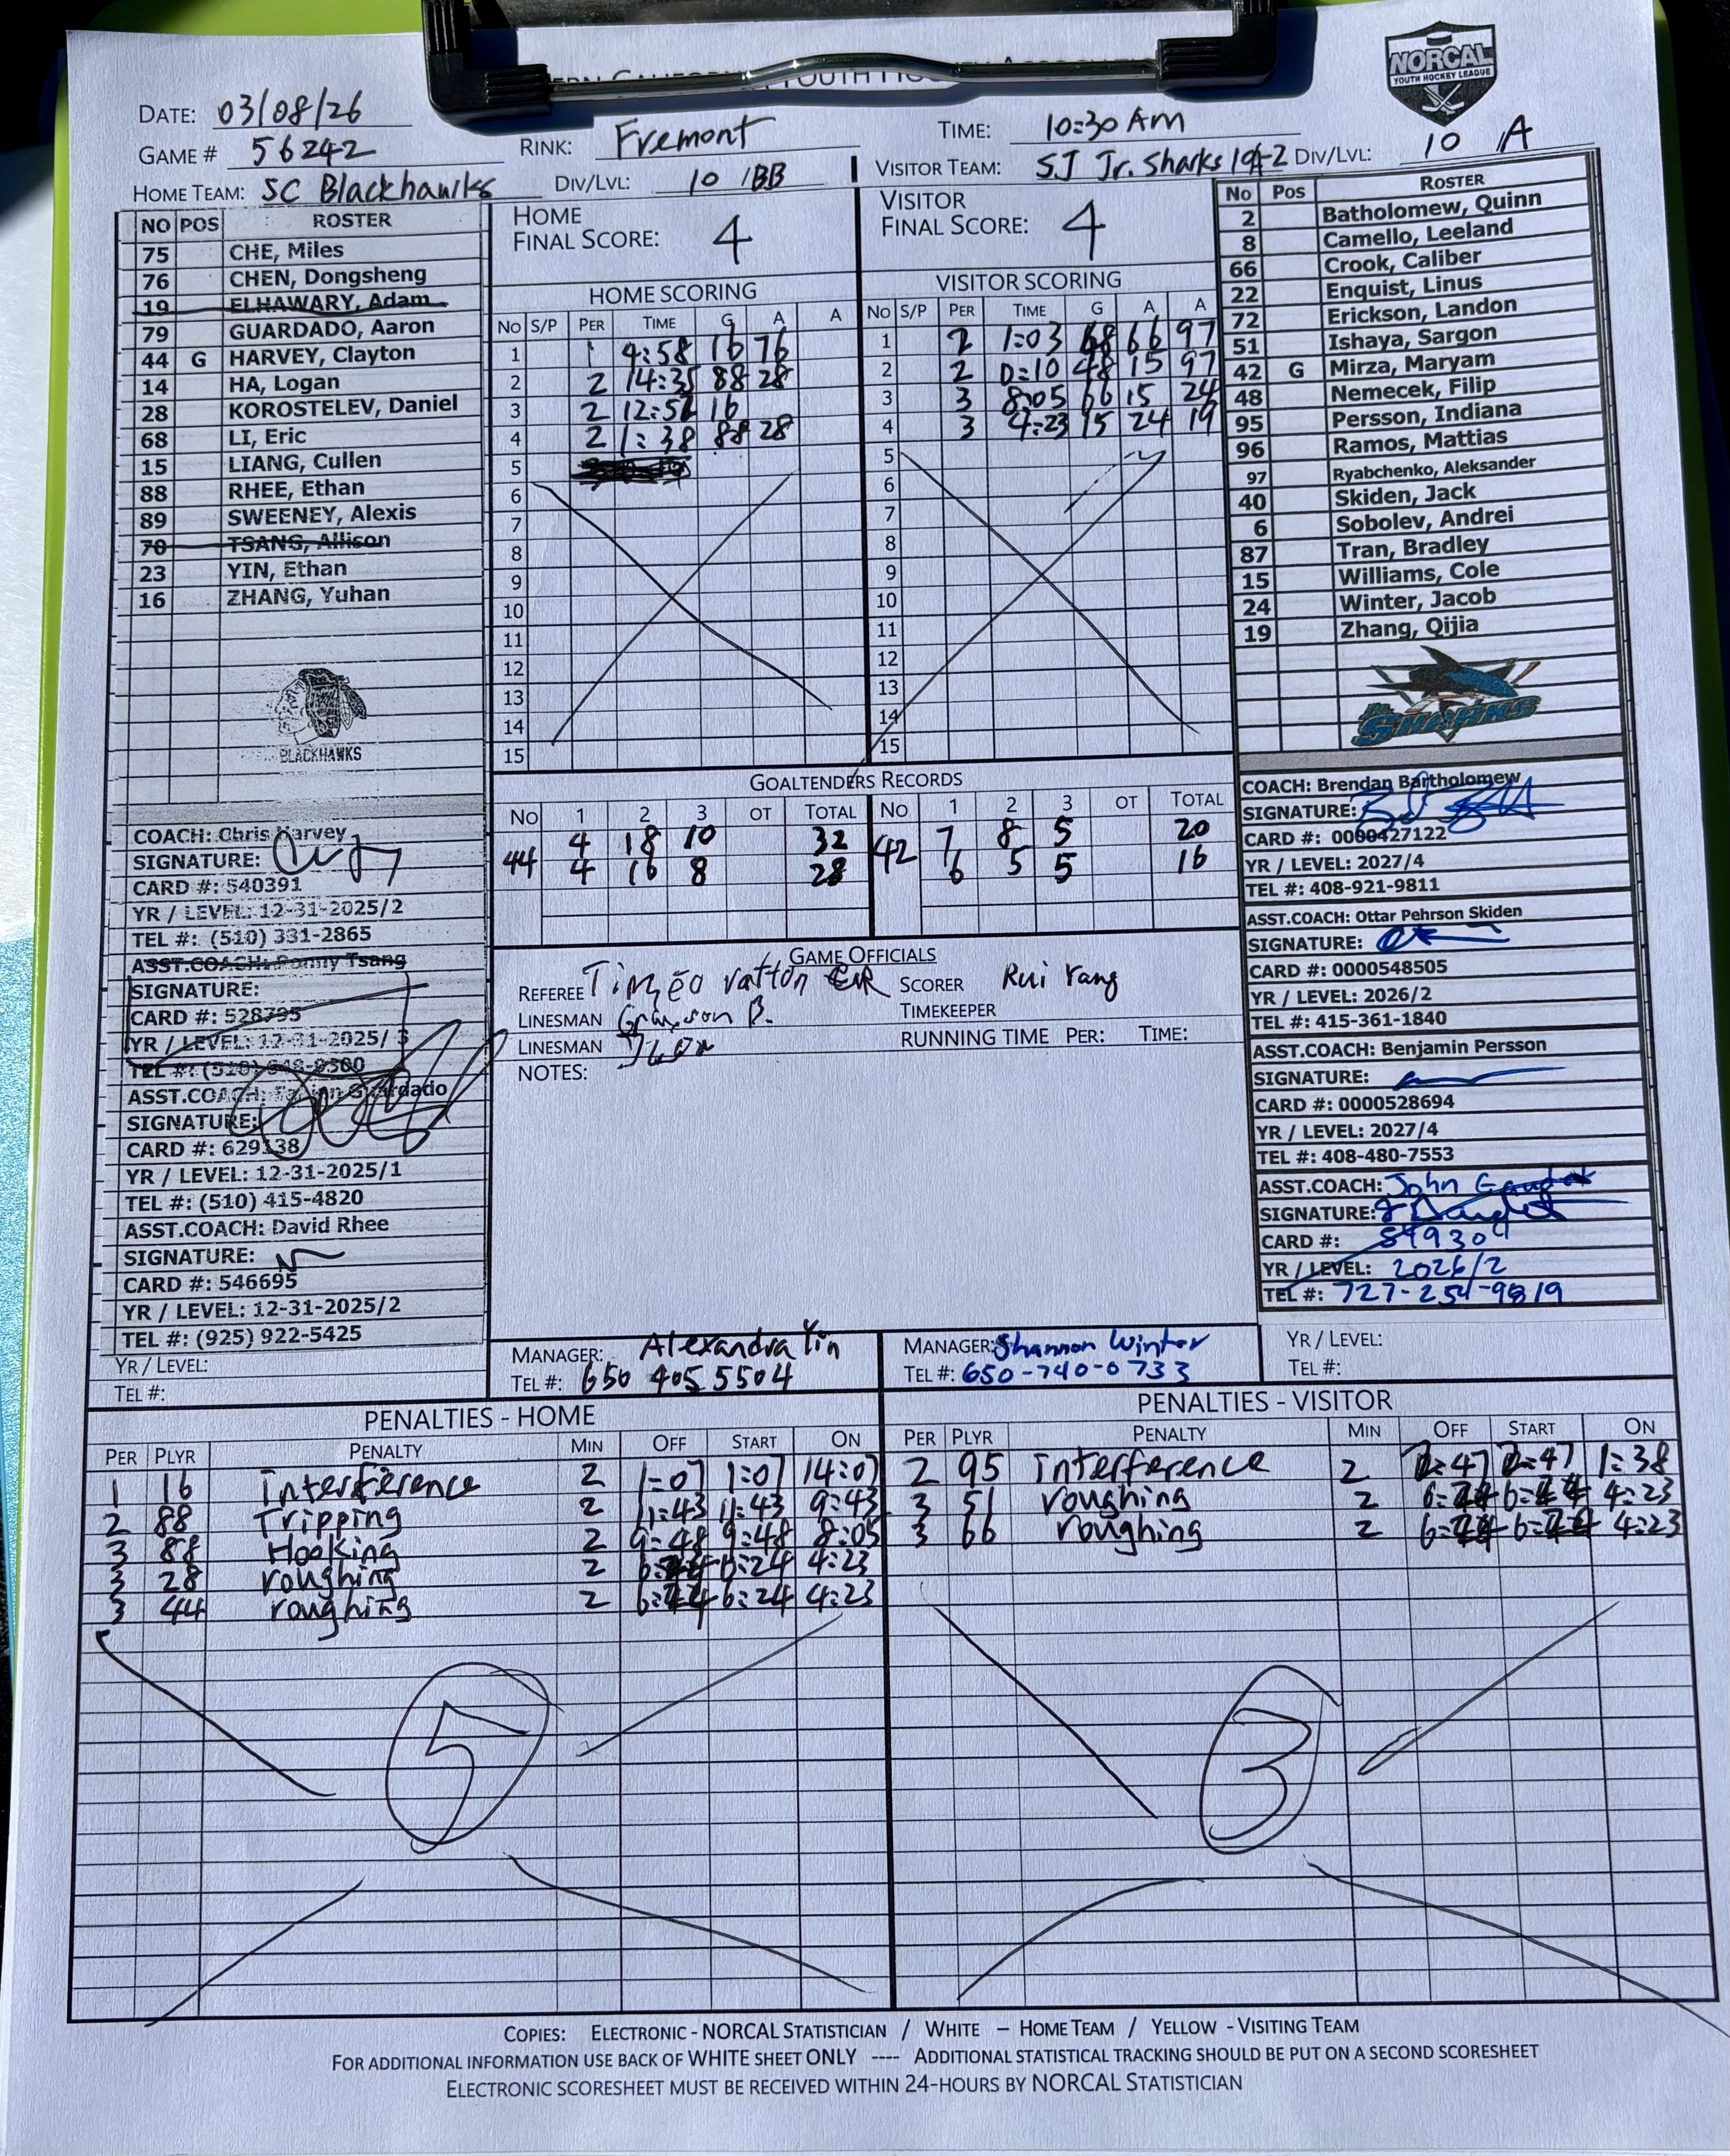 NORCAL
YOUTH HOCKEY LEAGUE
DATE: 03/08/26
GAME # 56242
RINK: Fremont
TIME: 10:30 AM
HOME TEAM: SC Blackhawks
DIV/LVL: 10 /BB
VISITOR TEAM: SJ Jr. Sharks
DIV/LVL: 10 A
NO POS ROSTER
75 CHE, Miles
76 CHEN, Dongsheng
19 ELHAWARY, Adam
79 GUARDADO, Aaron
44 G HARVEY, Clayton
14 HA, Logan
28 KOROSTELEV, Daniel
68 LI, Eric
15 LIANG, Cullen
88 RHEE, Ethan
89 SWEENEY, Alexis
70 TSANG, Allison
23 YIN, Ethan
16 ZHANG, Yuhan
BLACKHAWKS
COACH: Chris Harvey
SIGNATURE:
CARD #: 540391
YR / LEVEL: 12-31-2025/2
TEL #: (510) 331-2865
ASST.COACH: Ronny Tsang
SIGNATURE:
CARD #: 528795
YR / LEVEL: 12-31-2025/ 3
TEL #: (510)
ASST.COACH:
SIGNATURE:
CARD #: 629138
YR / LEVEL: 12-31-2025/1
TEL #: (510) 415-4820
ASST.COACH: David Rhee
SIGNATURE:
CARD #: 546695
YR / LEVEL: 12-31-2025/2
TEL #: (925) 922-5425
YR / LEVEL:
TEL #:
HOME
FINAL SCORE: 4
HOME SCORING
No S/P PER TIME G A A
1 1 4:58 16 76
2 2 14:35 88 28
3 2 12:5 16
4 2 1:38 88 28
5
6
7
8
9
10
11
12
13
14
15
VISITOR
FINAL SCORE: 4
VISITOR SCORING
No S/P PER TIME G A A
1 2 1:03 66 97
2 2 0:10 48 15 97
3 3 8:05 66 15 24
4 3 4:23 15 24 19
5
6
7
8
9
10
11
12
13
14
15
GOALTENDERS RECORDS
No 1 2 3 OT TOTAL
4 18 10 32
44 4 16 8 28
No 1 2 3 OT TOTAL
7 8 5 20
42 6 5 5 16
GAME OFFICIALS
REFEREE
SCORER Rui Yang
LINESMAN Grayson B.
TIMEKEEPER
LINESMAN
RUNNING TIME PER: TIME:
NOTES:
MANAGER: Alexandra Yin
TEL #: 650 405 5504
MANAGER: Shannon Winter
TEL #: 650-740-0733
No Pos ROSTER
2 Batholomew, Quinn
8 Camello, Leeland
66 Crook, Caliber
22 Enquist, Linus
72 Erickson, Landon
51 Ishaya, Sargon
42 G Mirza, Maryam
48 Nemecek, Filip
95 Persson, Indiana
96 Ramos, Mattias
97 Ryabchenko, Aleksander
40 Skiden, Jack
6 Sobolev, Andrei
87 Tran, Bradley
15 Williams, Cole
24 Winter, Jacob
19 Zhang, Qijia
SHARKS
COACH: Brendan Bartholomew
SIGNATURE:
CARD #: 0000427122
YR / LEVEL: 2027/4
TEL #: 408-921-9811
ASST.COACH: Ottar Pehrson Skiden
SIGNATURE:
CARD #: 0000548505
YR / LEVEL: 2026/2
TEL #: 415-361-1840
ASST.COACH: Benjamin Persson
SIGNATURE:
CARD #: 0000528694
YR / LEVEL: 2027/4
TEL #: 408-480-7553
ASST.COACH: John
SIGNATURE:
CARD #: 549304
YR / LEVEL: 2026/2
TEL #: 727-254-9819
YR / LEVEL:
TEL #:
PENALTIES - HOME
PER PLYR PENALTY MIN OFF START ON
1 16 Interference 2 1:07 1:07 14:07
2 88 Tripping 2 11:43 11:43 9:43
3 88 Hooking 2 9:48 9:48 8:05
3 28 roughing 2 6:24 4:23
3 44 roughing 2 6:24 4:23
5
PENALTIES - VISITOR
PER PLYR PENALTY MIN OFF START ON
2 95 interference 2 2:47 2:47 1:38
3 51 roughing 2 4:23
3 66 roughing 2 4:23
3
COPIES: ELECTRONIC - NORCAL STATISTICIAN / WHITE – HOME TEAM / YELLOW - VISITING TEAM
FOR ADDITIONAL INFORMATION USE BACK OF WHITE SHEET ONLY ---- ADDITIONAL STATISTICAL TRACKING SHOULD BE PUT ON A SECOND SCORESHEET
ELECTRONIC SCORESHEET MUST BE RECEIVED WITHIN 24-HOURS BY NORCAL STATISTICIAN